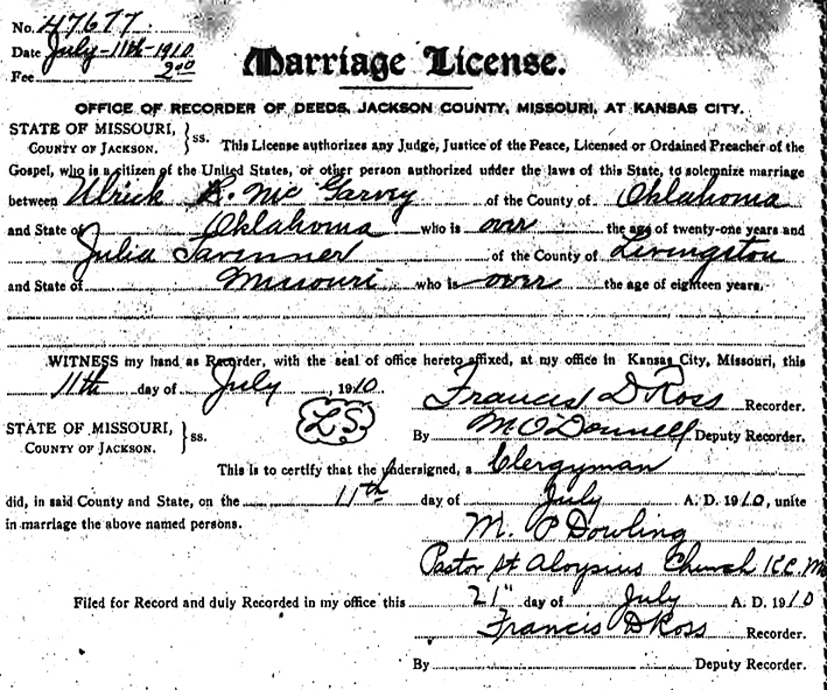 No. 47677.
Date July-11th-1910
Fee 2.00
Marriage License.
OFFICE OF RECORDER OF DEEDS, JACKSON COUNTY, MISSOURI, AT KANSAS CITY.
STATE OF MISSOURI, } ss. This License authorizes any Judge, Justice of the Peace, Licensed or Ordained Preacher of the
COUNTY OF JACKSON.
Gospel, who is a citizen of the United States, or other person authorized under the laws of this State, to solemnize marriage
between Ulrick B. McGarvy of the County of Oklahoma
and State of Oklahoma who is over the age of twenty-one years and
Julia Tavenner of the County of Livingston
and State of Missouri who is over the age of eighteen years.
WITNESS my hand as Recorder, with the seal of office hereto affixed, at my office in Kansas City, Missouri, this
11th day of July, 1910
Francis D Ross Recorder.
L.S.
STATE OF MISSOURI, } ss.
COUNTY OF JACKSON.
By M. O'Donnell Deputy Recorder.
This is to certify that the undersigned, a Clergyman
did, in said County and State, on the 11th day of July A. D. 1910, unite
in marriage the above named persons.
M. P Dowling
Pastor St Aloysius Church K.C. Mo
Filed for Record and duly Recorded in my office this 21" day of July A. D. 1910
Francis D Ross Recorder.
By Deputy Recorder.